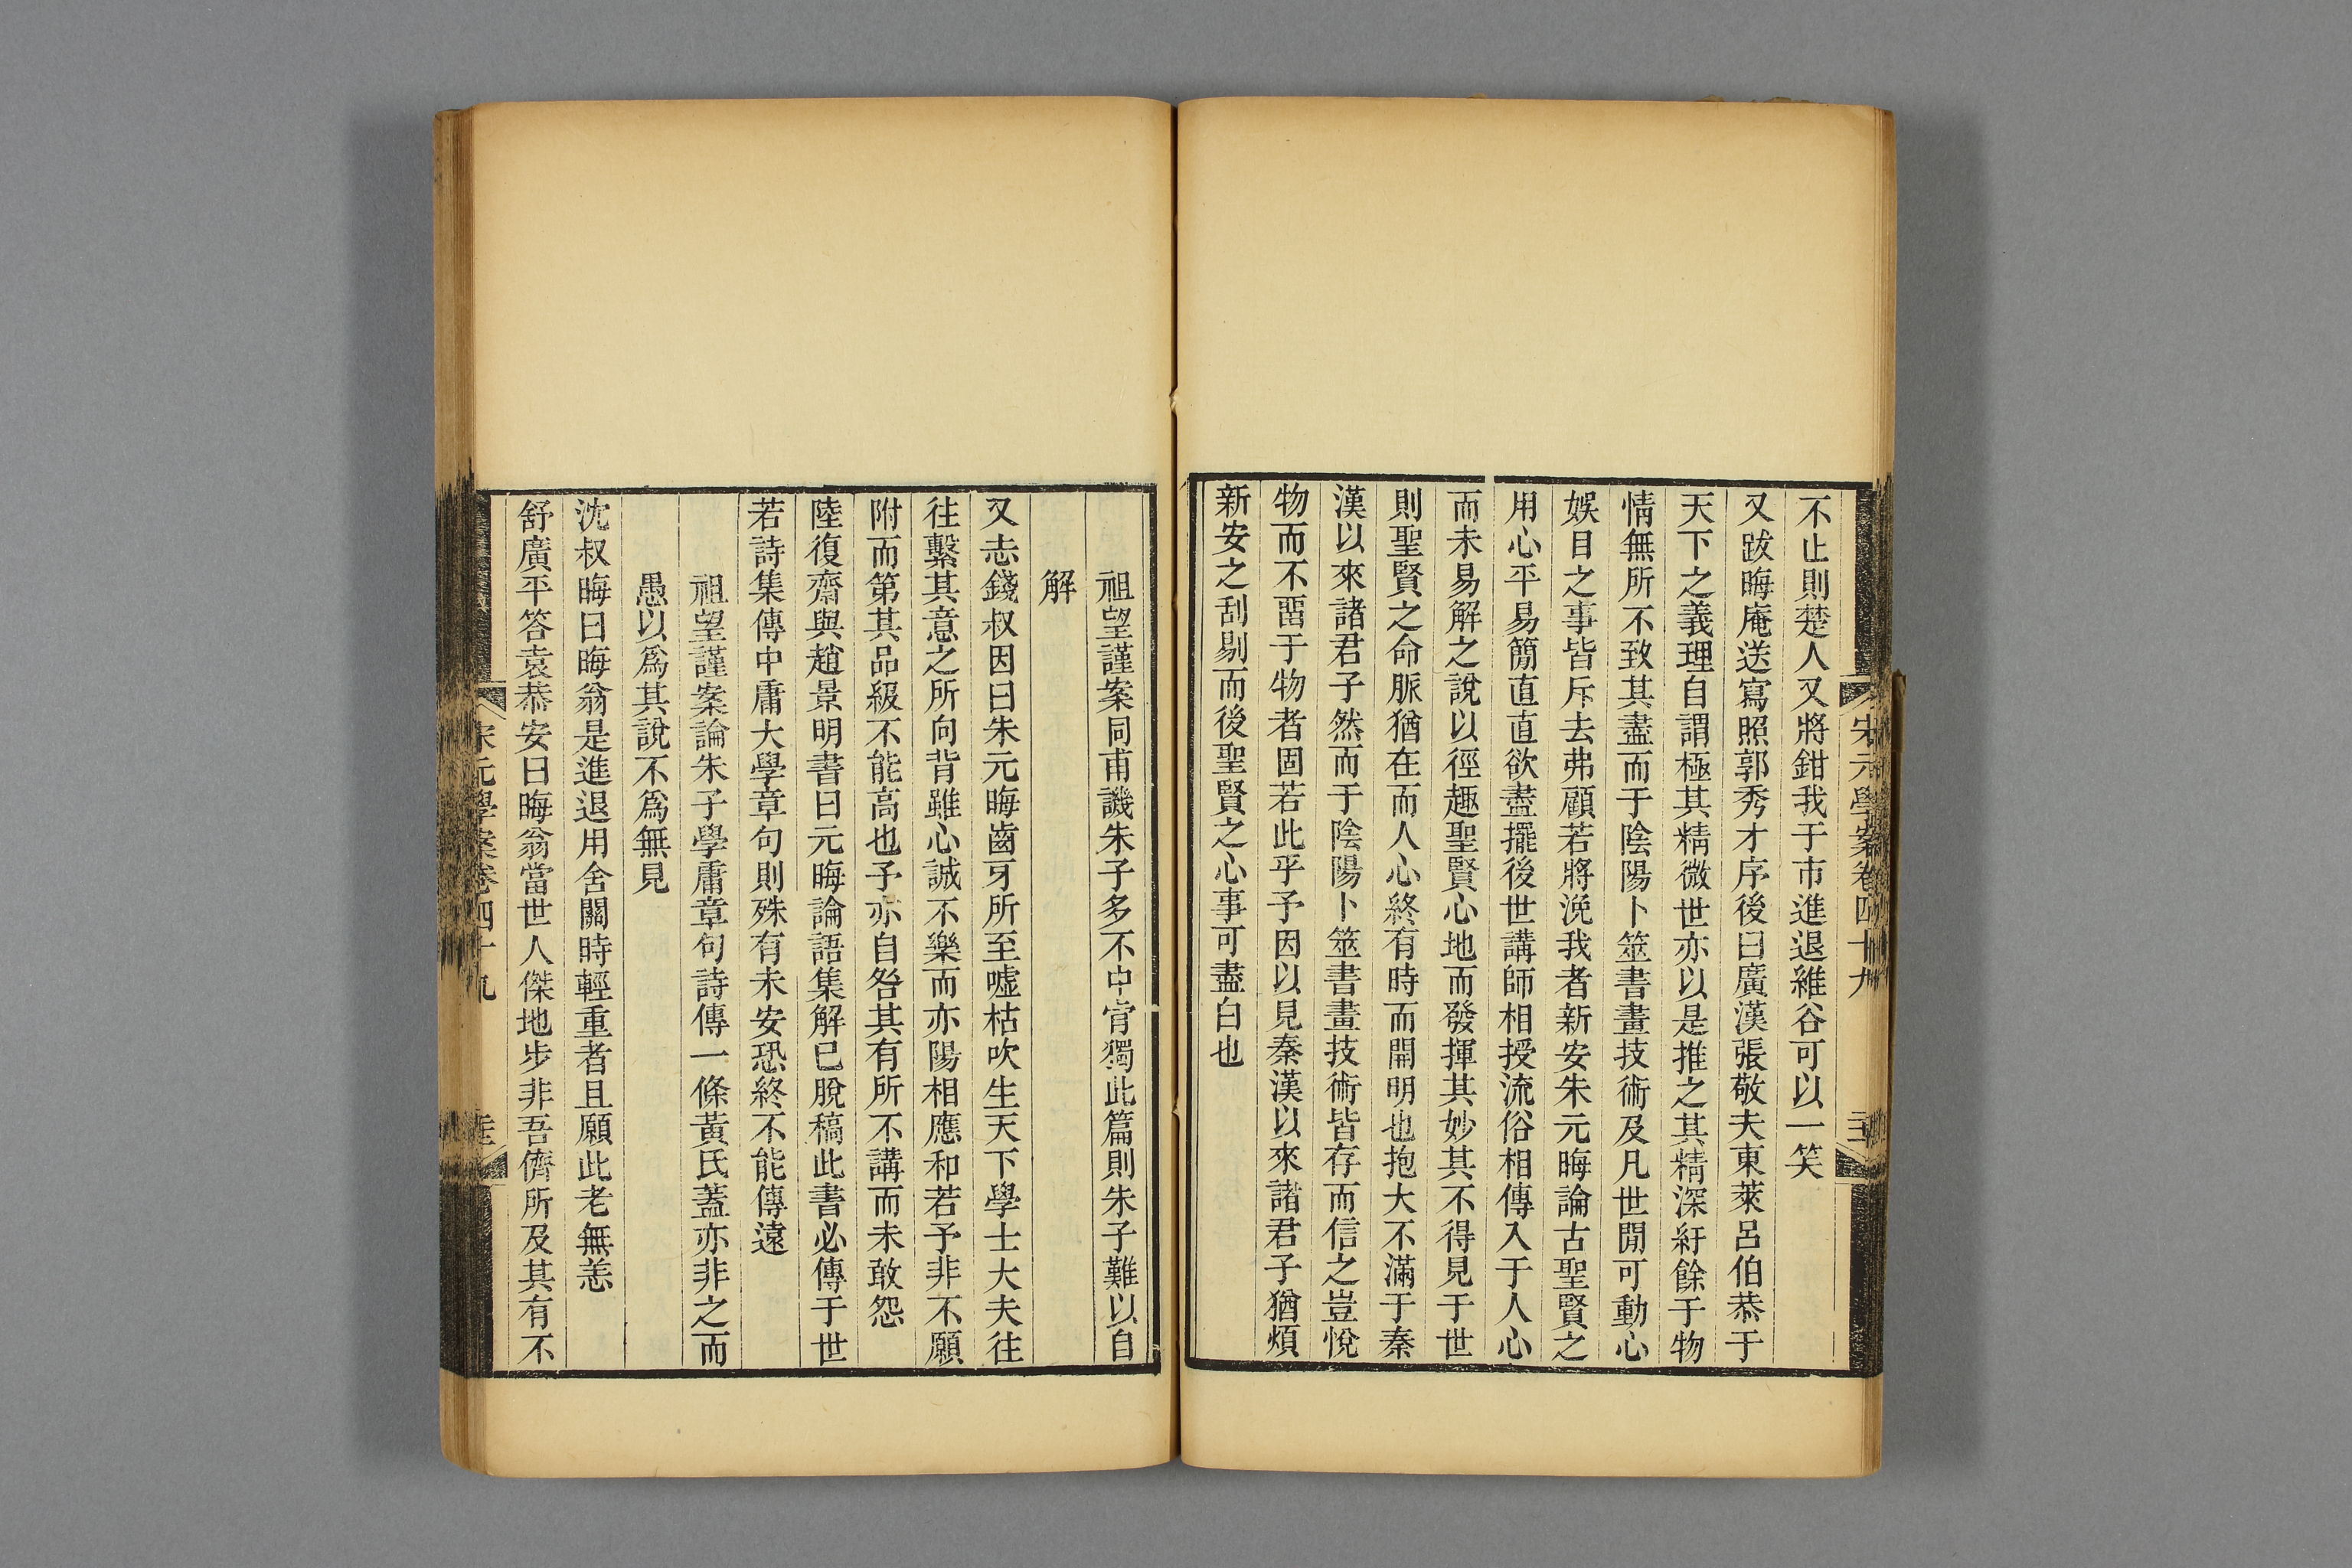 宋元學案卷四十九
不止則楚人又將鉗我于市進退維谷可以一笑
又跋晦庵送寫照郭秀才序後曰廣漢張敬夫東萊呂伯恭于
天下之義理自謂極其精微世亦以是推之其精深紆餘于物
情無所不致其盡而于陰陽卜筮書畫技術及凡世閒可動心
娛目之事皆斥去弗顧若將浼我者新安朱元晦論古聖賢之
用心平易簡直直欲盡擺後世講師相授流俗相傳入于人心
而未易解之說以徑趣聖賢心地而發揮其妙其不得見于世
則聖賢之命脈猶在而人心終有時而開明也抱大不滿于秦
漢以來諸君子然而于陰陽卜筮書畫技術皆存而信之豈悅
物而不畱于物者固若此乎予因以見秦漢以來諸君子猶煩
新安之刮剔而後聖賢之心事可盡白也
祖望謹案同甫譏朱子多不中肯獨此篇則朱子難以自
解
又志錢叔因曰朱元晦齒牙所至噓枯吹生天下學士大夫往
往繫其意之所向背雖心誠不樂而亦陽相應和若予非不願
附而第其品級不能高也予亦自咎其有所不講而未敢怨
陸復齋與趙景明書曰元晦論語集解已脫稿此書必傳于世
若詩集傳中庸大學章句則殊有未安恐終不能傳遠
祖望謹案論朱子學庸章句詩傳一條黃氏蓋亦非之而
愚以爲其說不爲無見
沈叔晦曰晦翁是進退用舍關時輕重者且願此老無恙
舒廣平答袁恭安曰晦翁當世人傑地步非吾儕所及其有不
宋元學案卷四十九